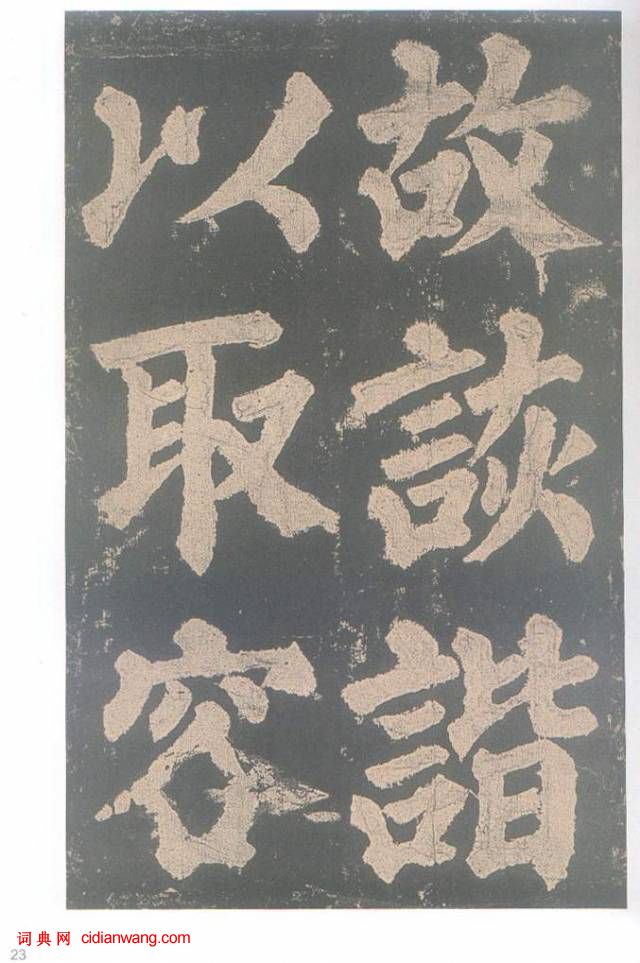 故詼諧
以取容
词典网 cidianwang.com
23